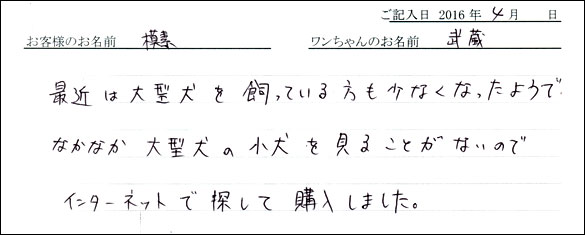 ご記入日 2016年 4月 日
お客様のお名前 様 ワンちゃんのお名前 武蔵
最近は大型犬を飼っている方も少なくなったようで
なかなか大型犬の小犬を見ることがないので
インターネットで探して購入しました。